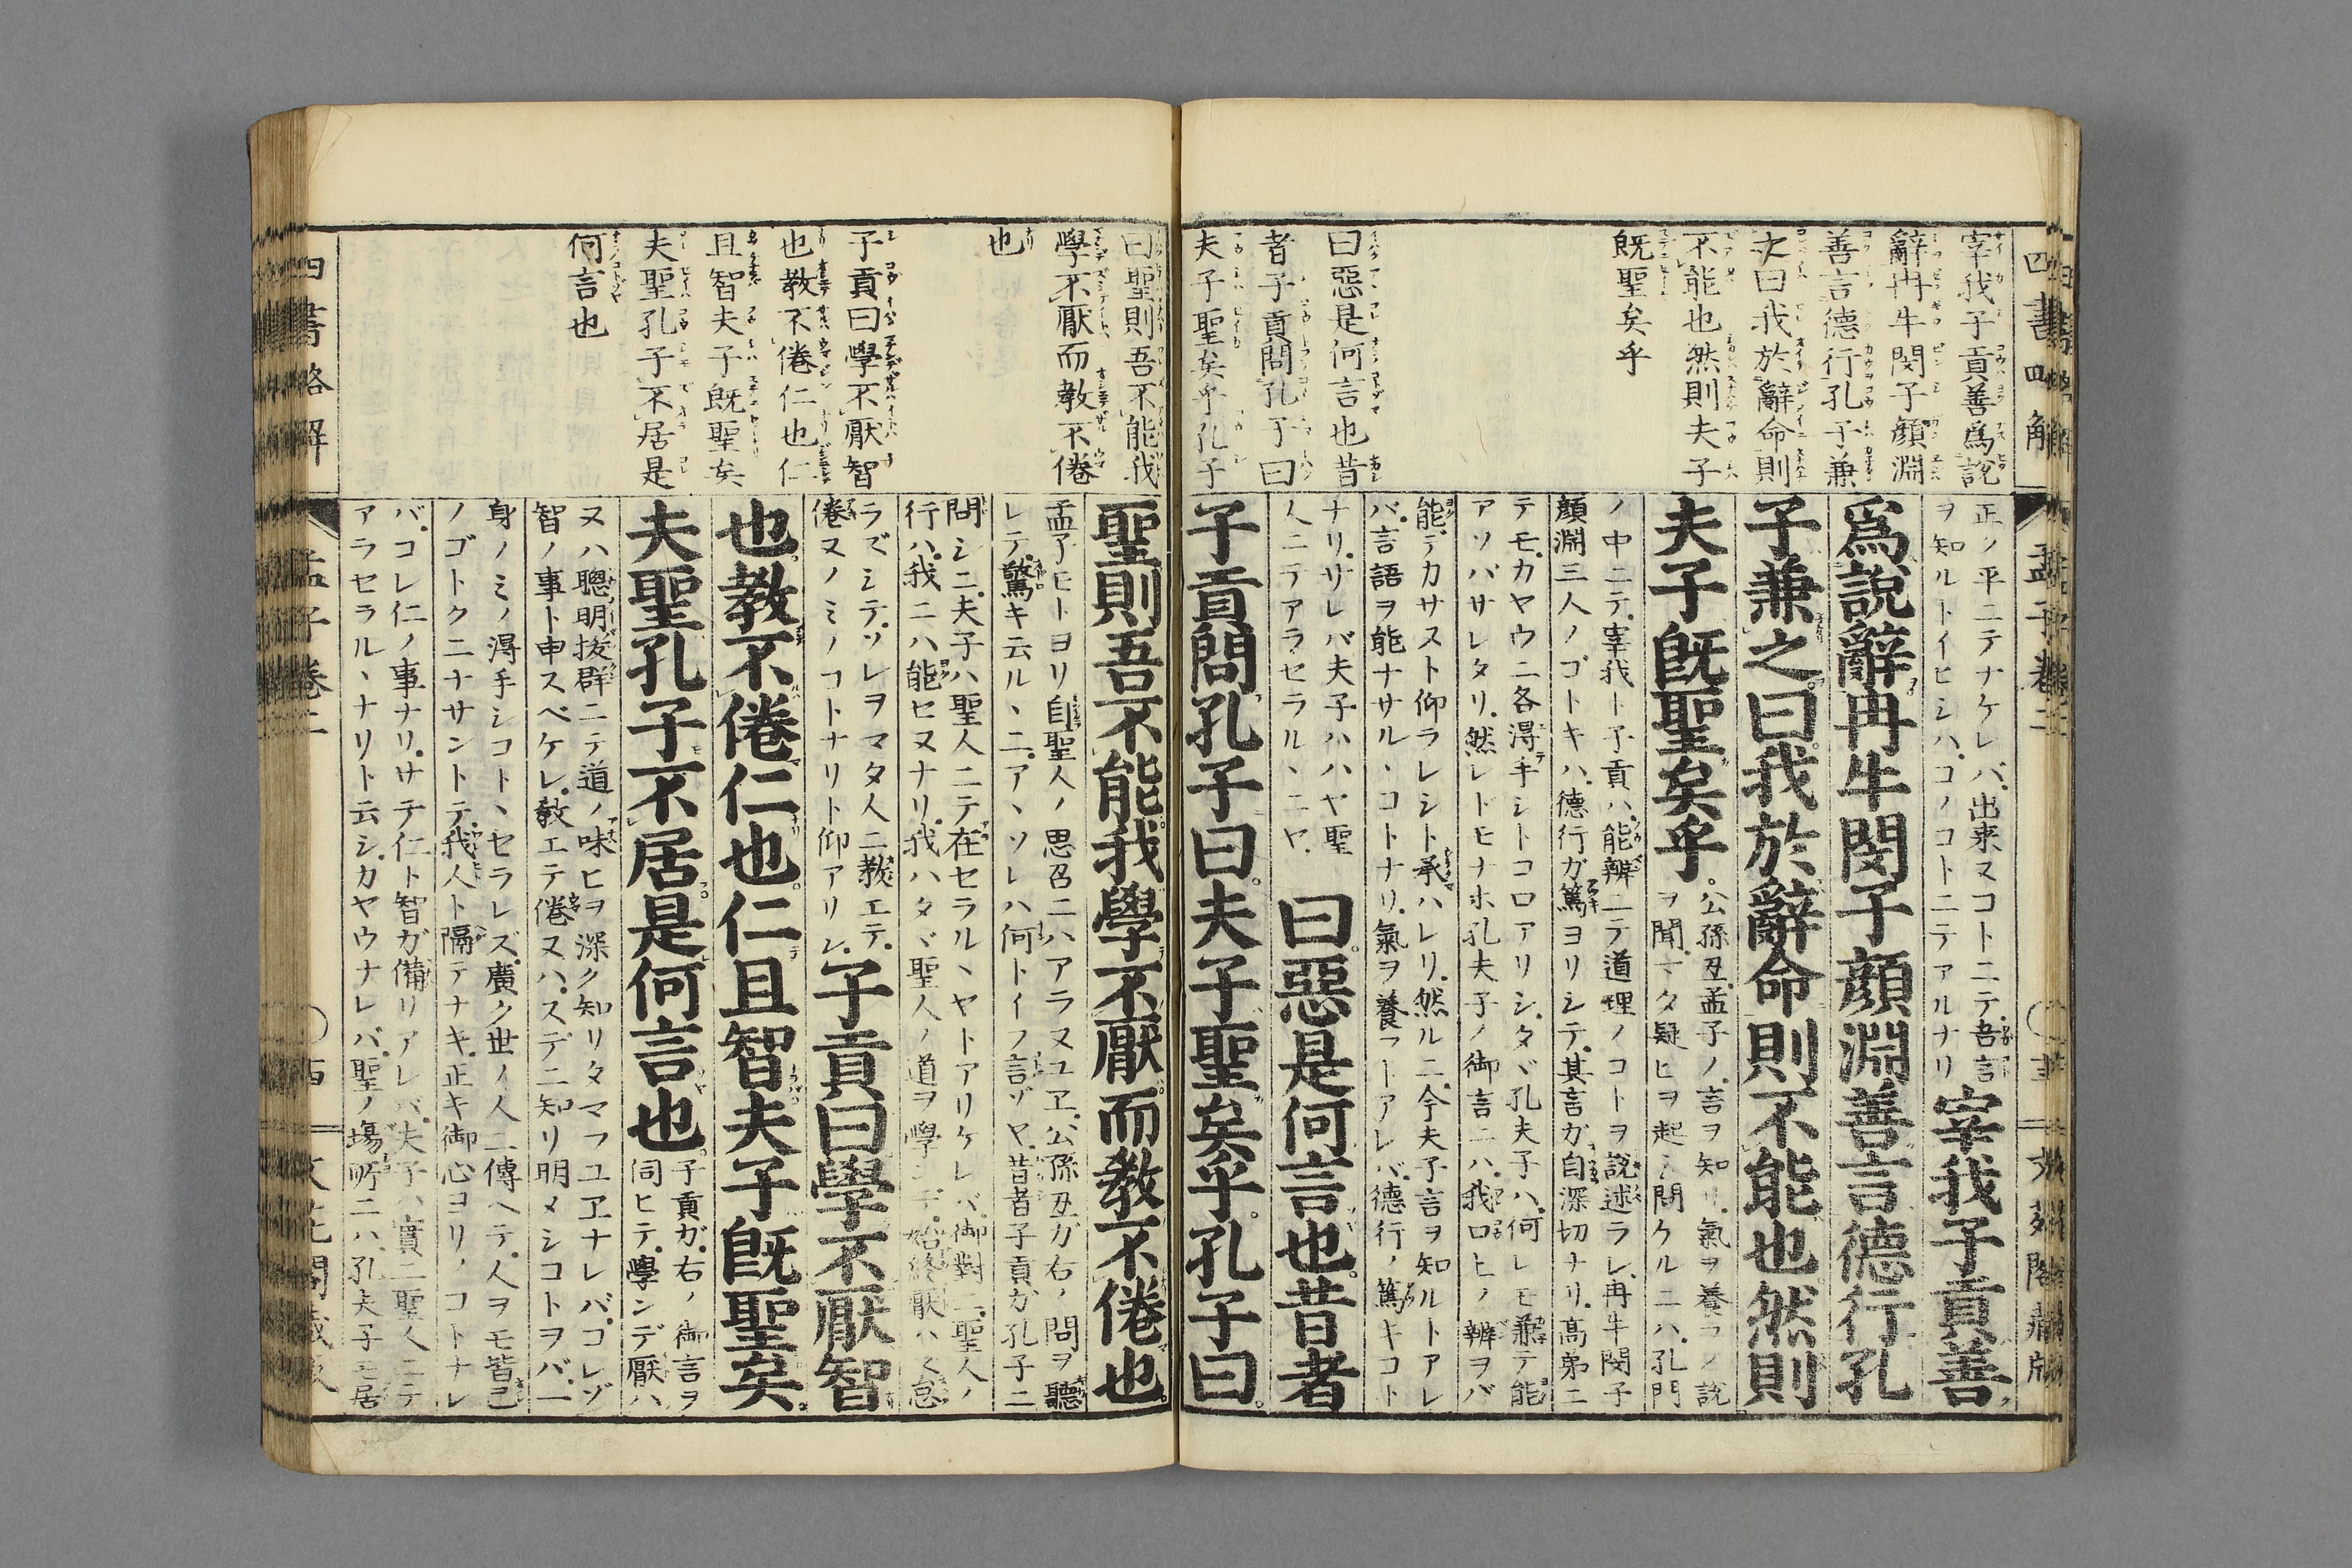 宰我子貢善爲説
辭冉牛閔子顔淵
善言德行孔子兼
之曰我於辭命則
不能也然則夫子
既聖矣乎
曰惡是何言也昔
者子貢問孔子曰
夫子聖矣乎孔子
正ノ平ニテナケレバ、出来ヌコトニテ、吾言
ヲ知ルトイヒシハ、コノコトニテアルナリ
宰我子貢善
爲說辭冉牛閔子顔淵善言德行孔
子兼之曰我於辭命則不能也然則
夫子既聖矣乎。
公孫丑、孟子ノ、言ヲ知リ、氣ヲ養フノ説
ヲ聞、マタ疑ヒヲ起シ問ケルニハ、孔門
ノ中ニテ、宰我ト子貢ハ、能辨ニテ道理ノコトヲ説述ラレ、冉牛閔子
顔淵三人ノゴトキハ、德行ガ篤ヨリシテ、其言ガ自深切ナリ、高弟ニ
テモ、カヤウニ各得手シトコロアリシ、タヾ孔夫子ハ、何レモ兼テ能
アソバサレタリ、然レドモナホ孔夫子ノ御言ニハ、我口ヒノ辨ヲバ
能デカサスト仰ラレシト承ハレリ、然ルニ、今夫子言ヲ知ルトアレ
バ、言語ヲ能ナサル、コトナリ、氣ヲ養フトアレバ、德行ノ篤キコト
ナリ、サレバ夫子ハハヤ聖
人ニテアラセラル、ニヤ、
曰惡是何言也昔者
子貢問孔子曰。夫子聖矣乎。孔子曰。
四書略解
孟子卷二
曰聖則吾不能我
學不厭而教不倦
也
子貢曰學不厭智
也教不倦仁也仁
且智夫子既聖矣
夫聖孔子不居是
何言也
聖則吾不能我學不厭而教不倦也。
孟子モトヨリ自聖人ノ思召ニハアラヌユヱ、公孫丑ガ右ノ問ヲ聽
レテ、驚キ云ル、ニ、ア、ソレハ何トイフ言ゾヤ、昔者子貢ガ孔子ニ
問シニ、夫子ハ聖人ニテ在セラル、ヤトアリケレバ、御對ニ、聖人ノ
行ハ、我ニハ能ヒヌナリ、我ハタヾ聖人ノ道ヲ學ンデ、始終厭ハズ怠
ラズシテ、ソレヲマタ人ニ教エテ、
倦ヌノミノコトナリト仰アリシ、
子貢曰學不厭智
也。教不倦仁也。仁且智夫子既聖矣。
夫聖孔子不居是何言也。
子貢ガ、右ノ御言ヲ
伺ヒテ、學ンデ厭ハ
ヌハ聰明拔群ニテ道ノ味ヒヲ深ク知リタマフユヱナレバ、コレゾ
智ノ事ト申スベケレ、教エテ倦ヌハ、スデニ知リ明メシコトヲバ、一
身ノミノ得手シコト、セラレズ、廣ク世ノ人ニ傳ヘテ、人ヲモ皆己
ノゴトクニナサントテ、我人ト隔テナキ、正キ御心ヨリノコトナレ
バ、コレ仁ノ事ナリ、サテ仁ト智ガ備リアレバ、夫子ハ實ニ聖人ニテ
アラセラル、ナリト云シ、カヤウナレバ、聖ノ塲所ニハ、孔夫子モ居
四書略解
孟子卷二